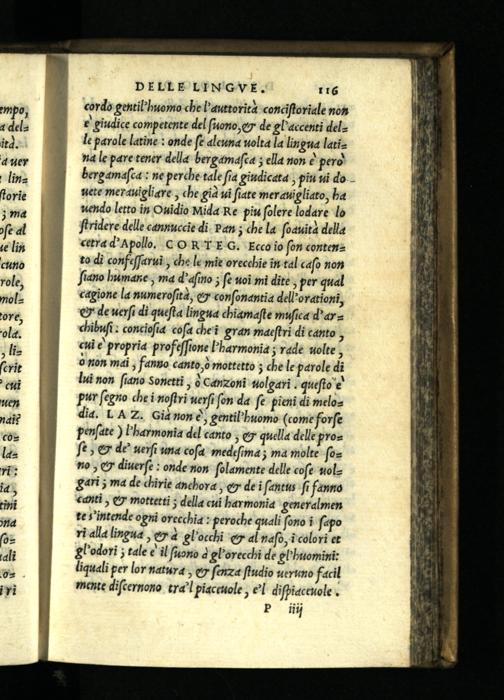 DELLE LINGVE. 116
empo,
a del=
ità.
ia uer
lin=
storie
; ma
ose al
ue lin
lcuno
role,
mol=
tore,
rola.
, li=
scrit
? cui
quen
mai?
co=
la=
ri:
ia,
tini
ona
so=
uali
no=
i ri
cordo gentil'huomo che l'auttorità concistoriale non
è giudice competente del suono, & de gl'accenti del=
le parole latine : onde se alcuna uolta la lingua lati=
na le pare tener della bergamasca ; ella non è però
bergamasca : ne perche tale sia giudicata , piu ui do
uete merauigliare , che già ui siate merauigliato, ha
uendo letto in Ouidio Mida Re piu solere lodare lo
stridere delle cannuccie di Pan ; che la soauità della
cetra d'Apollo. CORTEG. Ecco io son conten=
to di confessarui , che le mie orecchie in tal caso non
siano humane , ma d'asino ; se uoi mi dite , per qual
cagione la numerosità, & consonantia dell'orationi,
& de uersi di questa lingua chiamaste musica d'ar=
chibusi : conciosia cosa che i gran maestri di canto ,
cui è propria professione l'harmonia ; rade uolte ,
ò non mai , fanno canto,ò mottetto ; che le parole di
lui non siano Sonetti , ò Canzoni uolgari . questo è
pur segno che i nostri uersi son da se pieni di melo=
dia. LAZ. Già non è, gentil'huomo (come forse
pensate ) l'harmonia del canto , & quella delle pro=
se , & de' uersi una cosa medesima ; ma molte so=
no , & diuerse : onde non solamente delle cose uol=
gari ; ma de chirie anchora, & de i santus si fanno
canti , & mottetti ; della cui harmonia generalmen
te s'intende ogni orecchia : peroche quali sono i sapo
ri alla lingua , & à gl'occhi & al naso, i colori et
gl'odori ; tale è il suono à gl'orecchi de gl'huomini:
liquali per lor natura , & senza studio ueruno facil
mente discernono tra'l piaceuole , e'l dispiaceuole .
P iiij